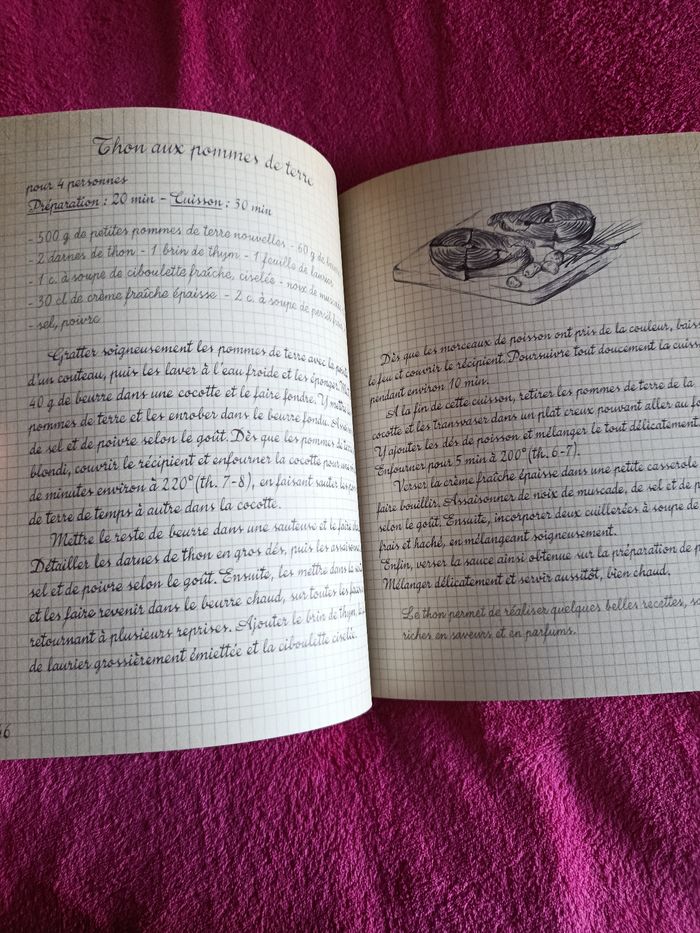 Thon aux pommes de terre
pour 4 personnes
Préparation : 20 min - Cuisson : 30 min
- 500 g de petites pommes de terre nouvelles - 60 g de
- 2 darnes de thon - 1 brin de thym - 1 feuille de laurier
- 1 c. à soupe de ciboulette fraîche, ciselée - noix de
- 30 cl de crème fraîche épaisse - 2 c. à soupe de persil
- sel, poivre
Gratter soigneusement les pommes de terre avec la
d'un couteau, puis les laver à l'eau froide et les éponger.
40 g de beurre dans une cocotte et le faire fondre. Y mettre
pommes de terre et les enrober dans le beurre fondu.
de sel et de poivre selon le goût. Dès que les pommes de
blondi, couvrir le récipient et enfourner la cocotte pour une
de minutes environ à 220° (th. 7-8), en faisant sauter les
de terre de temps à autre dans la cocotte.
Mettre le reste de beurre dans une sauteuse et le faire
Détailler les darnes de thon en gros dés, puis les
sel et de poivre selon le goût. Ensuite, les mettre dans la
et les faire revenir dans le beurre chaud, sur toutes les
retournant à plusieurs reprises. Ajouter le brin de thym,
de laurier grossièrement émiettée et la ciboulette ciselée.
Dès que les morceaux de poisson ont pris de la couleur,
le feu et couvrir le récipient. Poursuivre tout doucement la
pendant environ 10 min.
A la fin de cette cuisson, retirer les pommes de terre de la
cocotte et les transvaser dans un plat creux pouvant aller au
Y ajouter les dés de poisson et mélanger le tout
Enfourner pour 5 min à 200° (th. 6-7).
Verser la crème fraîche épaisse dans une petite casserole
faire bouillir. Assaisonner de noix de muscade, de sel et de
selon le goût. Ensuite, incorporer deux cuillerées à soupe de
frais et haché, en mélangeant soigneusement.
Enfin, verser la sauce ainsi obtenue sur la préparation de
Mélanger délicatement et servir aussitôt, bien chaud.
Le thon permet de réaliser quelques belles recettes,
riches en saveurs et en parfums.